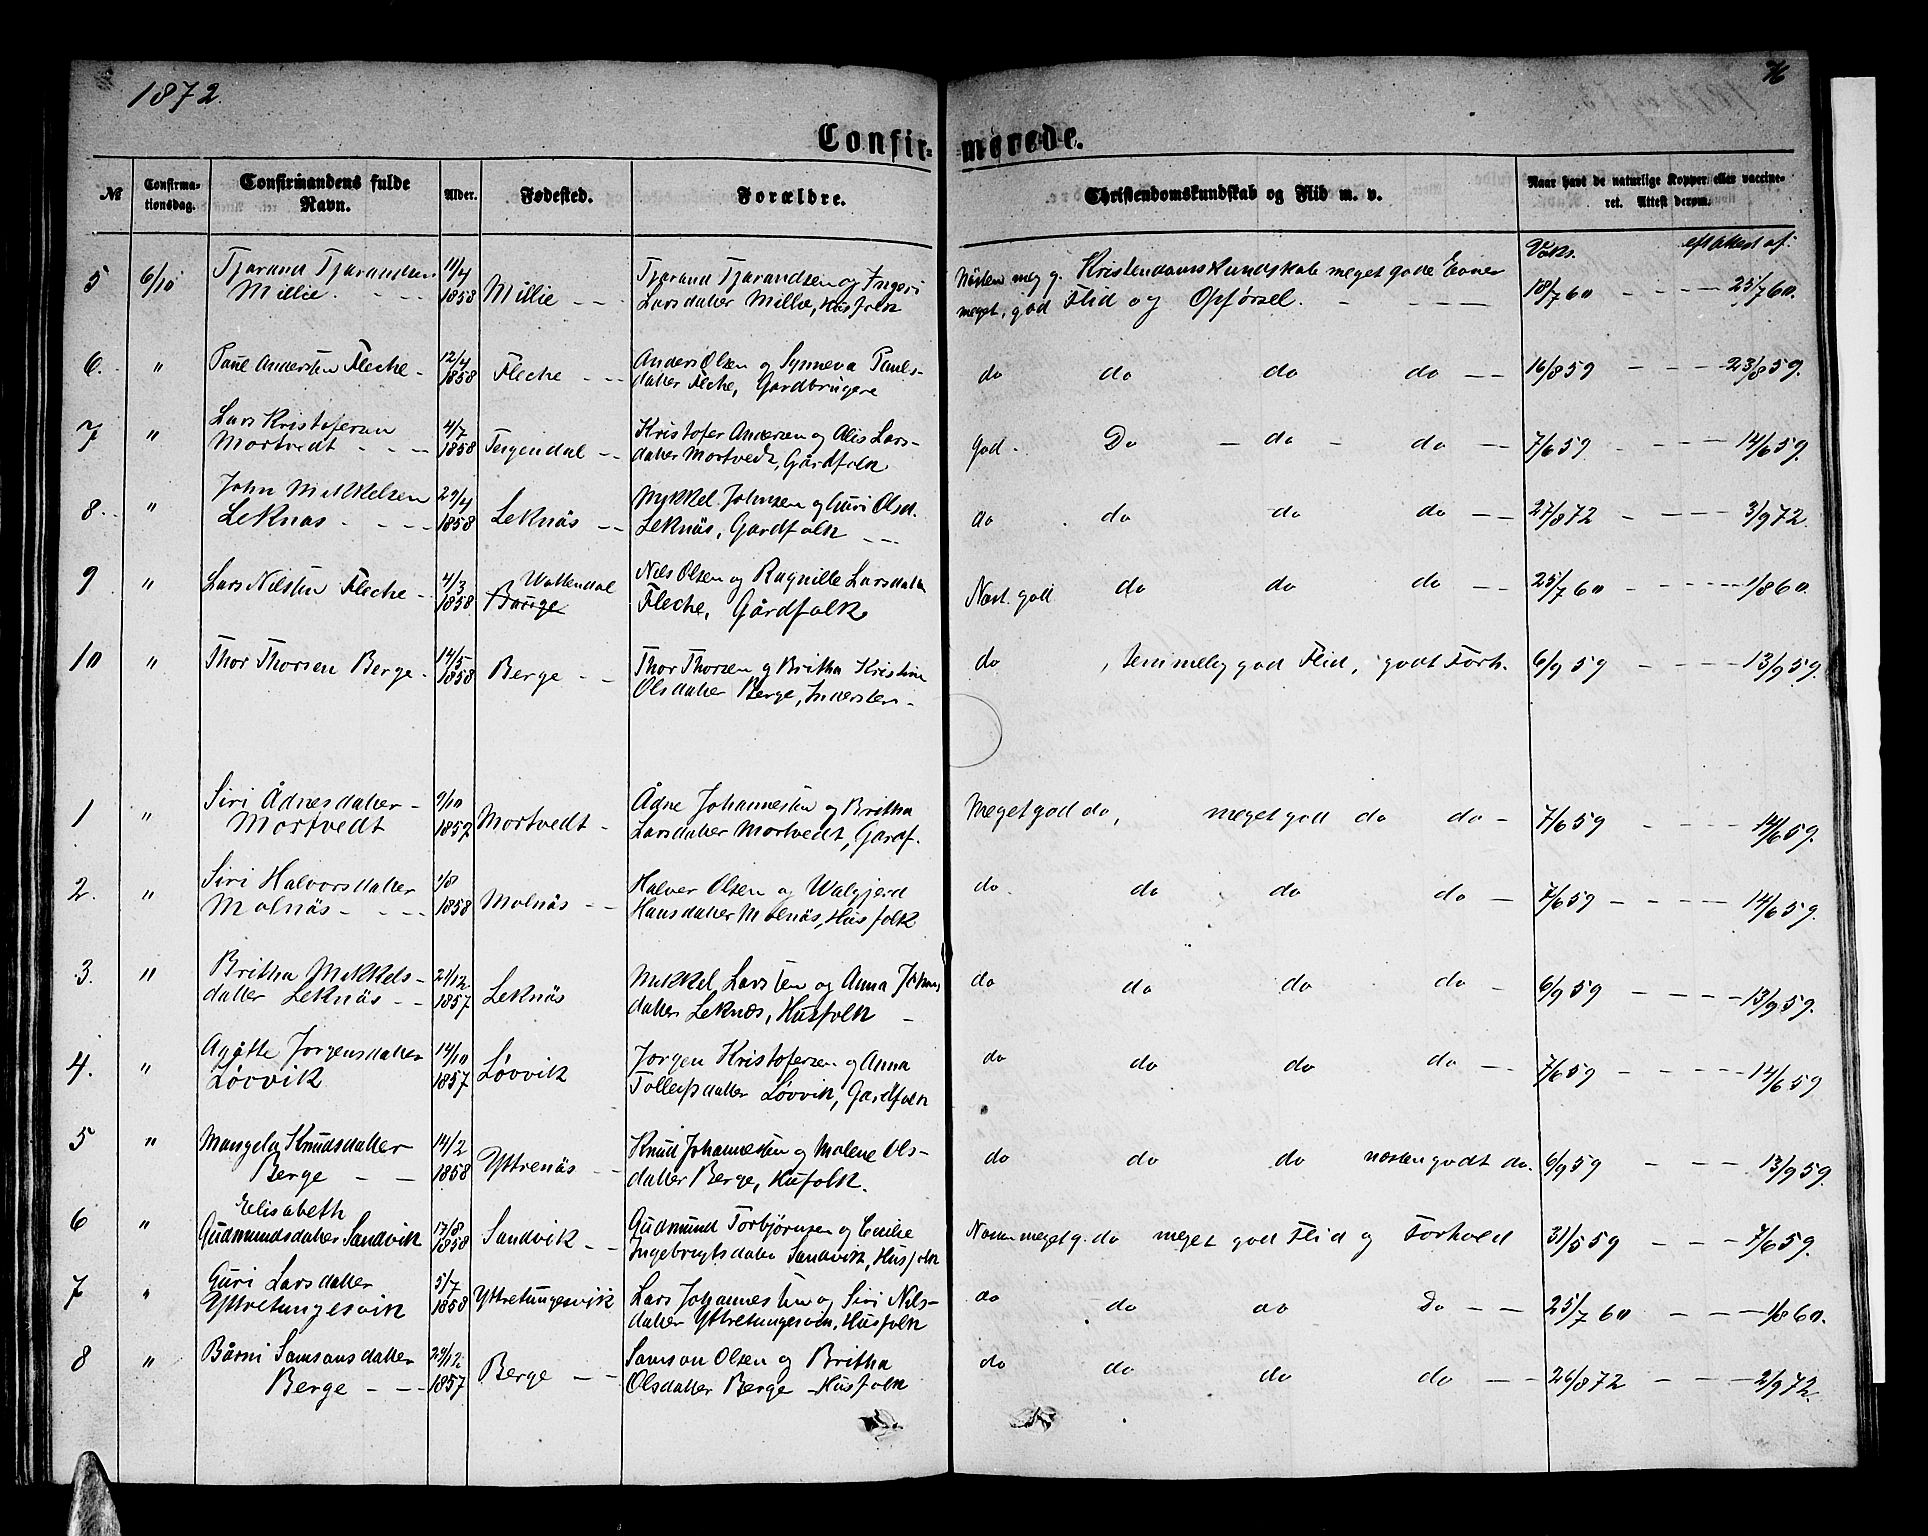 1872.
Confirmerede.
№ Confirmationsdag. Confirmandens fulde Navn. Alder. Fødested. Forældre. Christendomskundskab og Flid m. v. Naar havt de naturlige Kopper eller vaccineret. Attest derom.
Vaks. eft attest af
5 6/10 Tjerand Tjerandsen 11/4 Tjerand Tjerandsen og Ingeri Næsten meg g. Kristendomskundskab meget gode Evner
Millie. - - - 1858 Millie - - Larsdatter Millie, Husfolk meget, god Flid og Opførsel. - - - - 18/7 60 - - - - 25/7 60.
6. " Paul Andersen Fleche - 12/4 Fleche - - Anders Olsen og Synneva Pauls-
1858 datter Fleche, Gardbrugere do do do do - - 16/8 59 - - - - 23/8 59.
7 " Lars Kristofersen 4/7 Kristofer Andersen og Lars-
Mortvedt - - - 1858 - - datter Mortvedt, Gårdfolk God. Do - do - do - - 7/6 59 - - - 14/6 59.
8. " John Mikkelsen 29/4 Mykkel Johnsen og Guri Olsd.
Leknäs. - - - 1858 Leknäs - - Leknäs, Gardfolk - - do do do do - - 27/8 72 - - - - 3/9 72.
9 " Lars Nilssen Fleche - 4/3 Vattendal Nils Olsen og Ragnille Larsdatter
1858. Bauge Fleche, Gårdfolk Næst. god do do do - - 25/7 60 - - - - 1/8 60.
10 " Thor Thorsen Berge - 14/5 Berge - - Thor Thorsen og Britha Kristine do , temmelig god Flid, godt Forh. 6/9 59 - - - 13/9 59.
1858 Olsdatter Berge, Inderster -
1 " Siri Ådnesdatter - 9/10 Ådne Johannessen og Britha Meget god do, meget god do do - 7/6 59 - - - - 14/6 59.
Mortvedt 1857 Mortvedt - Larsdatter Mortvedt, Gardf.
2. " Siri Halvorsdatter 1/8 Halvor Olsen og Walgjerd do. do do do - 7/6 59 - - - - 14/6 59.
Molnäs - - - - 1858 Molnäs - - Hansdatter Molnäs, Husfolk
3. " Britha Mikkels- 21/12 Mikkel Larssen og Anna Johns do do do do - 6/9 59 - - - - 13/9 59.
datter Leknäs - - 1857 Leknäs datter Leknæs, Husfolk -
4. " Agåthe Jorgensdatter 14/10 Jorgen Kristofersen og Anna do do do do - - 7/6 59 - - - - 14/6 59
Løvvik 1857 Løvvik Tollefsdatter Løvvik, Gardfolk
5 " Mangela Knudsdatter 14/2 Knud Johannessen og Malene Ols- do do do næsten godt do. 6/9 59 - - - 13/9 59.
Berge - - 1858 Yttrenäs - - datter Berge, Hufolk.
Elisabeth
6 " Gudmundsdatter Sandvik 17/8 Sandvik - - Gudmund Torbjørnsen og Cecilie meget g. do meget god Flid og Forhold 31/5 59 - - - 7/6 59.
1858 Ingebrigtsdatter Sandvik, Husfolk
7 " Guri Larsdatter 5/7 Yttretungesvik Lars Johannessen og Siri Nils- do do do Do - - 25/7 60 - - - - 1/8 60.
Yttretungesvik 1858 datter Yttretungesvik, Husfolk
8 " Bårni Samsonsdatter 24/12 Samson Olsen og Britha do do do do - - 26/8 72 - - - 2/9 72.
Berge - - - 1857 Berge - - Olsdatter Berge - Husfolk